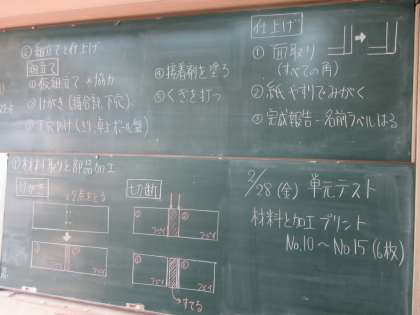 ② 組立てと仕上げ
組立て
① 仮組立て ※協力
② けがき(接合線、下穴)
③ 下穴あけ(きり、卓上ボール盤)
④ 接着剤を塗る
⑤ くぎを打つ
仕上げ
① 面取り
(すべての角)
② 紙やすりでみがく
③ 完成報告→名前ラベルはる
① 材料取りと部品加工
けがき
切断
① ②
すてる
2/28(金) 単元テスト
材料と加工プリント
No.10〜No15(6枚)